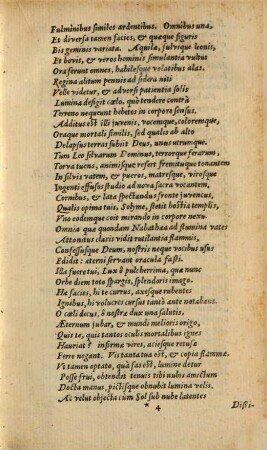 Fulminibus similes ardentibus. Omnibus una,
Et diversa tamen facies, & quæque figuris
Bis geminis variata. Aquilæ, fulvique leonis,
Et bovis, & veros hominis simulantia vultus
Ora ferunt omnes, habilesque volatibus alas.
Regina alitum pennis ad sidera niti
Velle videtur, & adversi patientia solis
Lumina defigit cælo, quò tendere contrà
Terreno nequeunt hebetes in corpore sensus.
Additus est illi juvenis, vocemque, coloremque,
Oraque mortali similis, sed qualis ab alto
Delapsus terras subiit Deus, unus utrumque.
Tum Leo silvarum Dominus, terrorque ferarum,
Torva tuens, animisque refert fremituque tonantem
In silvis vatem, & pueros, matresque, virosque
Ingenti effusos studio ad nova sacra vocantem,
Cornibus, & lata spectandus fronte juvencus,
Qualis opima tuis, Solyme, stetit hostia templis,
Vivo eodemque coit mirando in corpore nexu.
Omnia quæ quondam Nabathæa ad flumina vates
Attonitus claris vidit rutilantia flammis,
Confessusque Deum, nostris neque vocibus usus
Edidit: æterni servant oracula fasti.
Illa fueretui, Lux ô pulcherrima, quæ nunc
Orbe diem toto spargis, splendoris imago.
Hæ facies, hi te currus, axesque rubentes
Ignibus, hi volucres cursus tantò ante notabant.
O cæli decus, ô nostræ dux una salutis,
Æternum jubar, & mundi melioris origo,
Quis te, quis tantos oculis mortalibus ignes
Hauriat? infirma vires, aciesque retusæ
Ferre negant. Vis tanta tua est, & copia flammæ.
Vt tamen optato, quà fas est, lumine detur
Posse frui, obtendit tenuis tibi nubis amictum
Docta manus, pictisque obnubit lumina velis.
Ac velut objecta cùm Sol sub nube latentes
* 4
Disti-